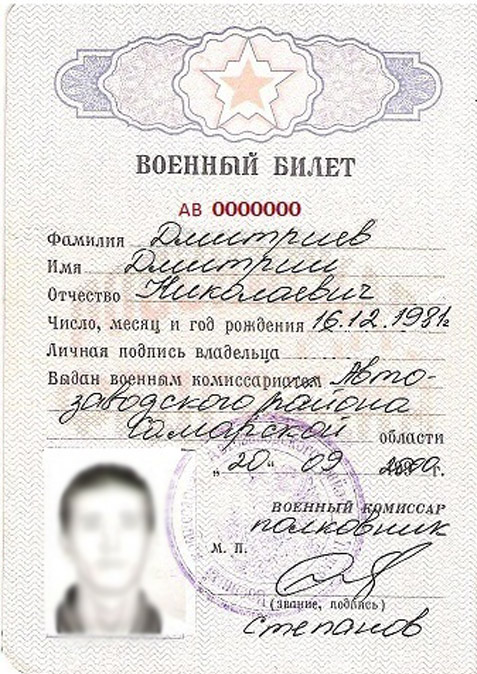 ВОЕННЫЙ БИЛЕТ
АВ 0000000
Фамилия Дмитриев
Имя Дмитрий
Отчество Николаевич
Число, месяц и год рождения 16.12.1981г
Личная подпись владельца
Выдан военным комиссариатом Авто-
заводского района
Самарской области
„20“ 09 г.
ВОЕННЫЙ КОМИССАР
полковник
М. П.
(звание, подпись)
Степанов